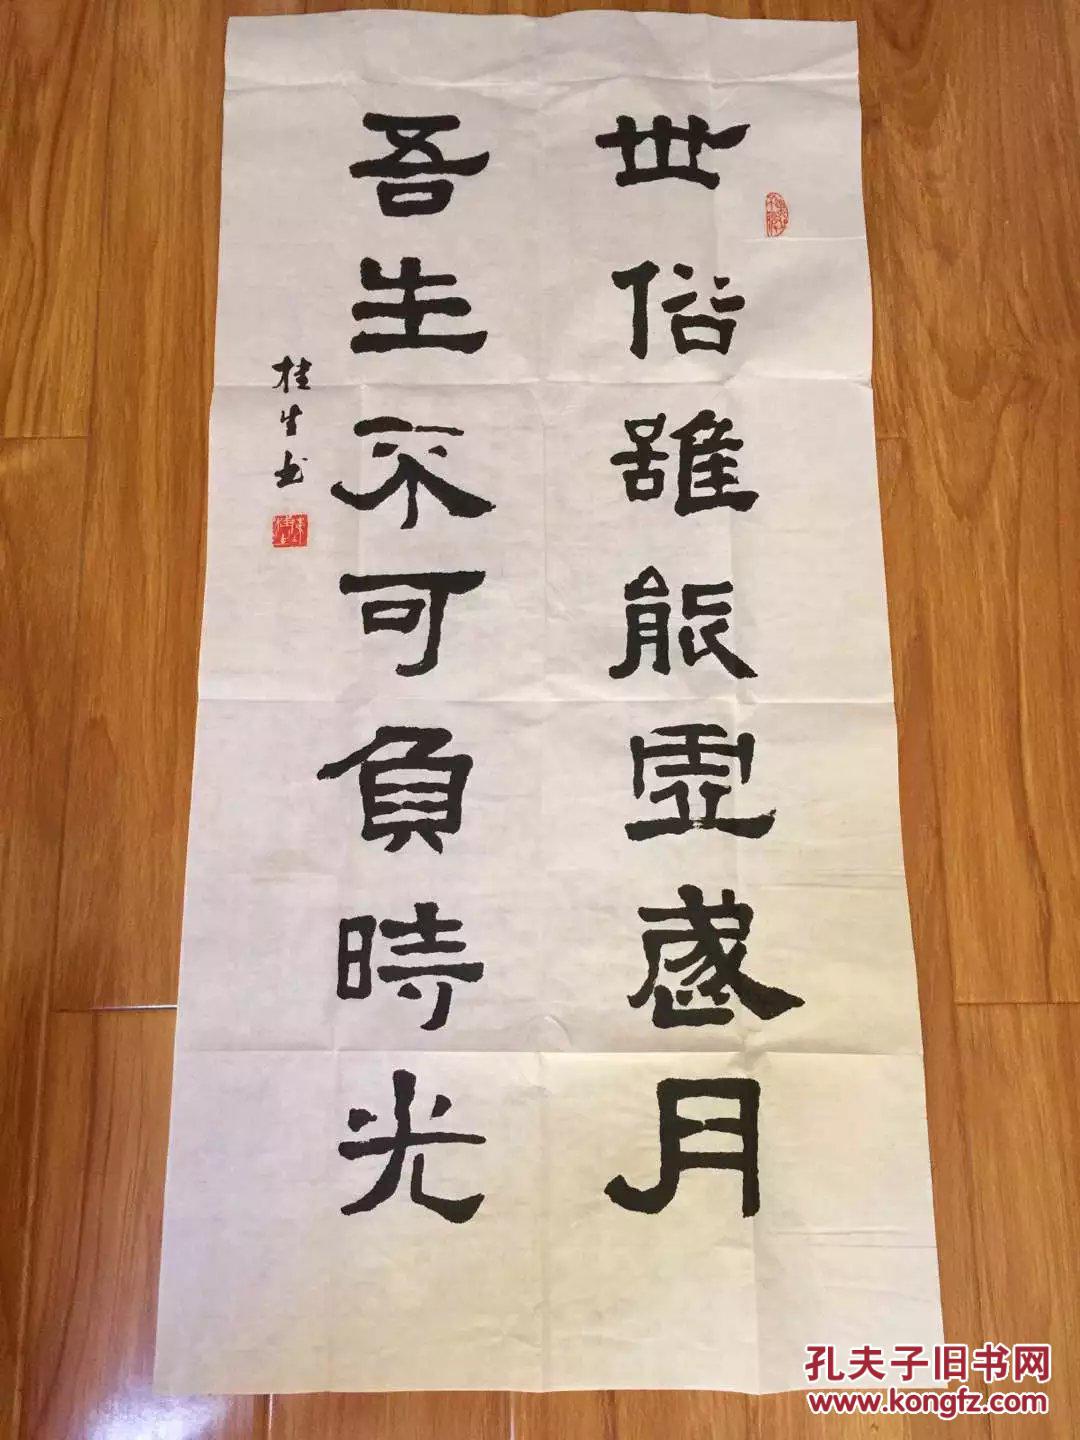 世俗誰能虛歲月
吾生不可負時光
桂生书
孔夫子旧书网
www.kongfz.com